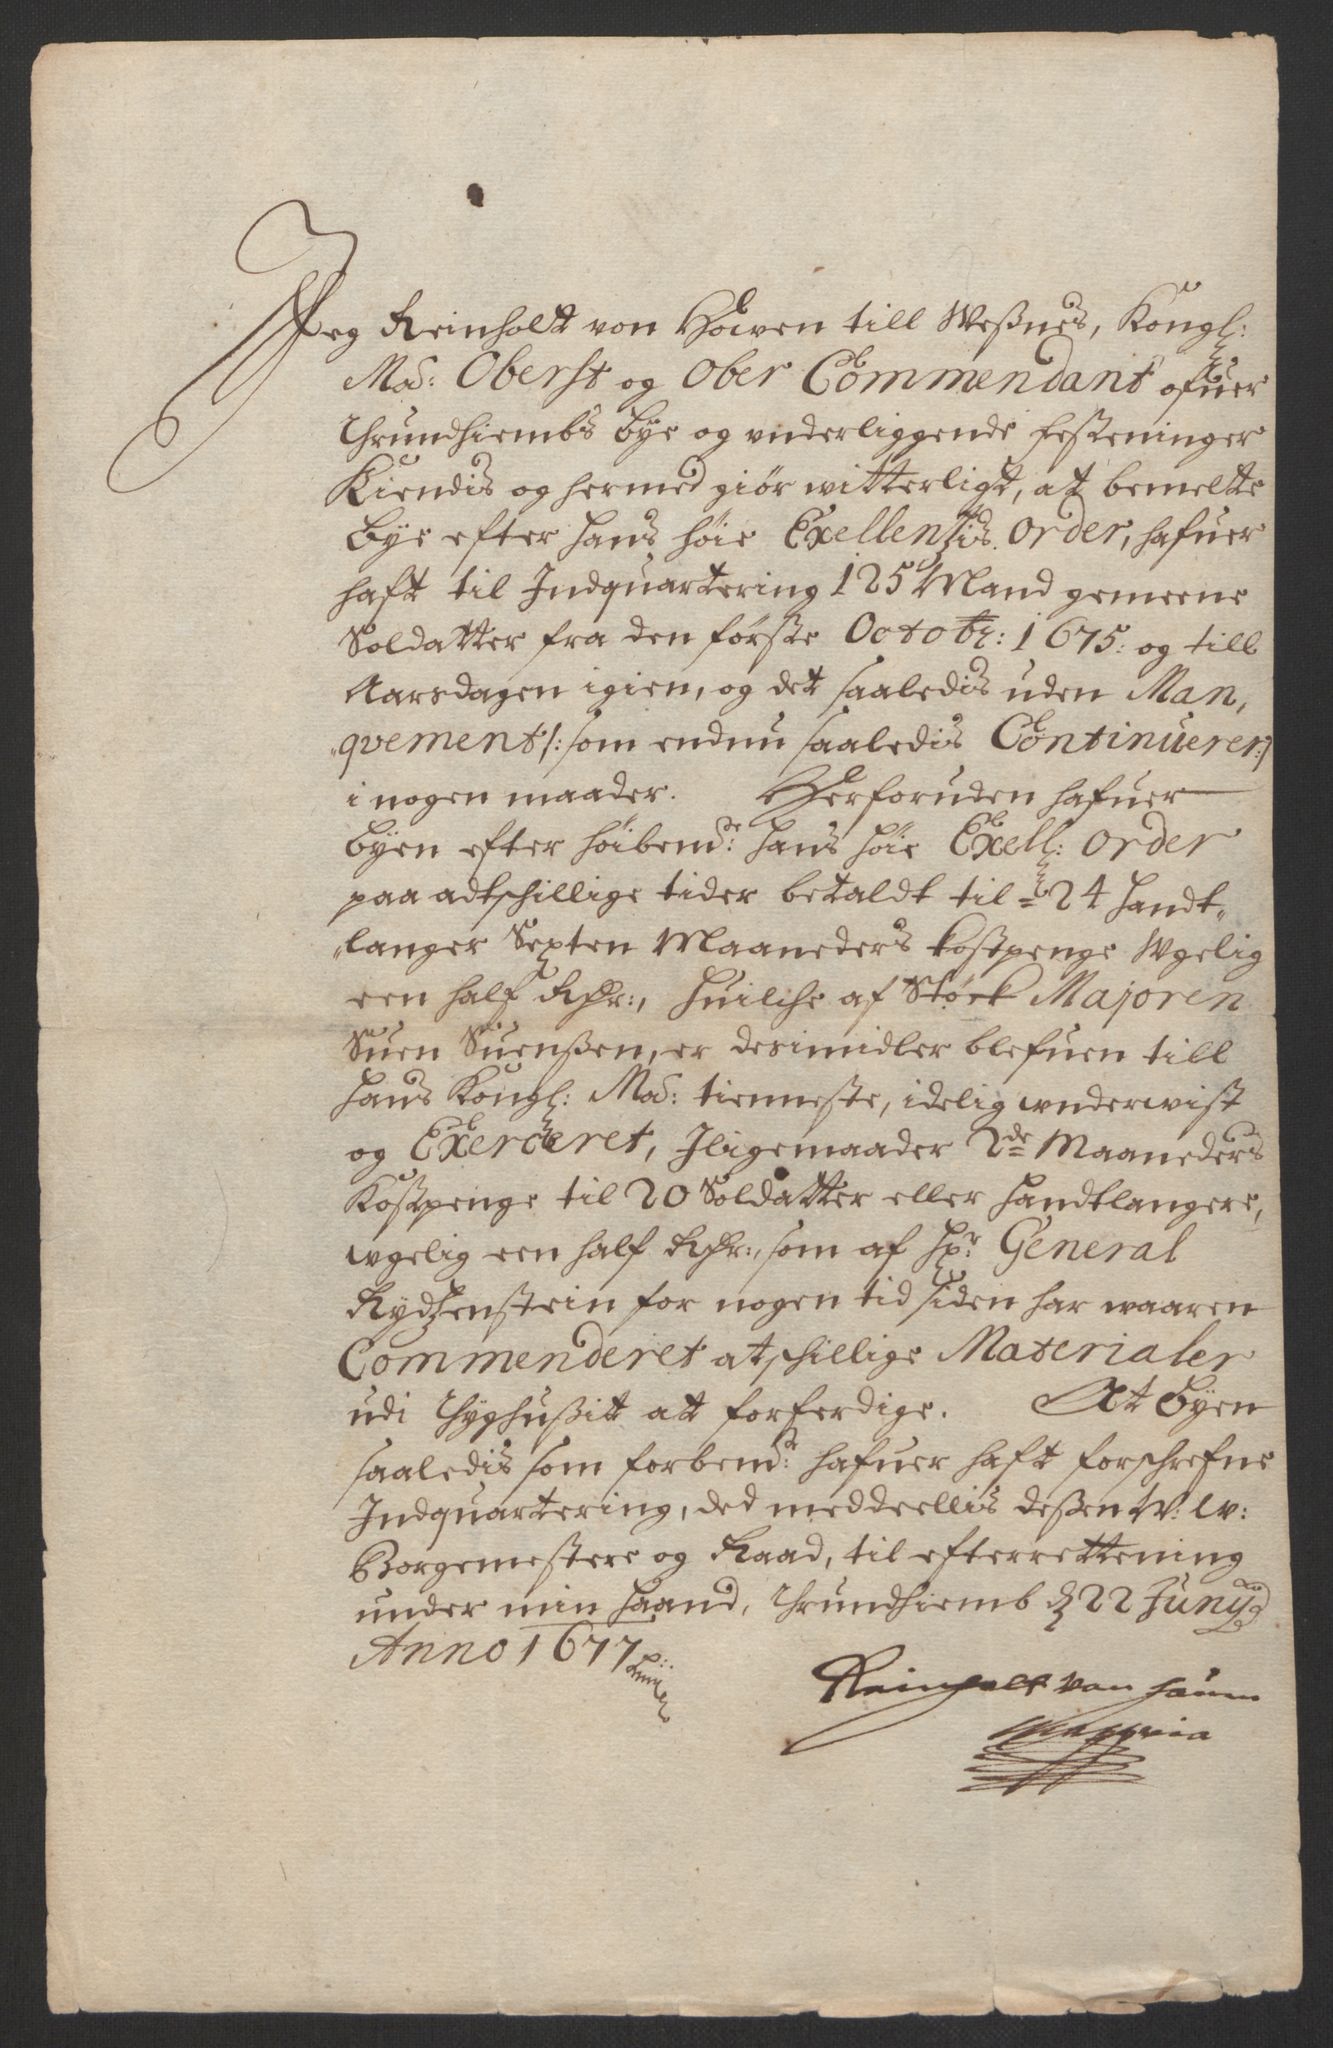 Jeg Reinholt von Höwen till Weßnes, Kongl:
Ma: Oberst og Ober Commendant ofuer
Thrundhiembs bye og vnderliggende festeninger
Kiendis og hermed giør witterligt, at bemelte
bye efter hans høie Exellenzis order, hafuer
haft til Indquartering 125 Mand gemeene
Soldatter fra den første Octobr: 1675: og till
Aarsdagen igien, og det saaledis uden Man,
"qvement /: som endnu saaledis Continuerer :/
i nogen maader. Herforuden hafuer
byen efter høibemde: hans høie Exell: order
paa adtschillige tider betaldt til 24 handt"
"langer Sexten Maaneders kostpenge Wgelig
een half Rdr:, huilche af Støck Majoren
Suen Suenßen, er desimidler blefuen till
hans Kongl: Ma: tienneste, idelig wnderwist
og Exerceret, Iligemaader 2de Maaneders
Kostpenge til 20 Soldatter eller handtlangere,
wgelig een half Rdr:, som af Hr: General
Rydzenstein for nogen tid siden har waaren
Commenderet atschillige Materialer
udi Thyghußitt at forferdige. At byen
saaledis som forbemde: hafuer haft forschrefne
Indquartering, ded meddeellis deßen W: lv:
Borgemestere og Raad, til efterrettening
under min haand, Thrundhiemb d 22 Junij
Anno 1677
Reinholt von Houen